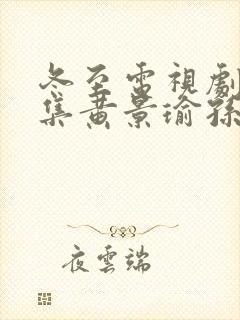 冬至電視劇
集黄景瑜孫
夜雲端